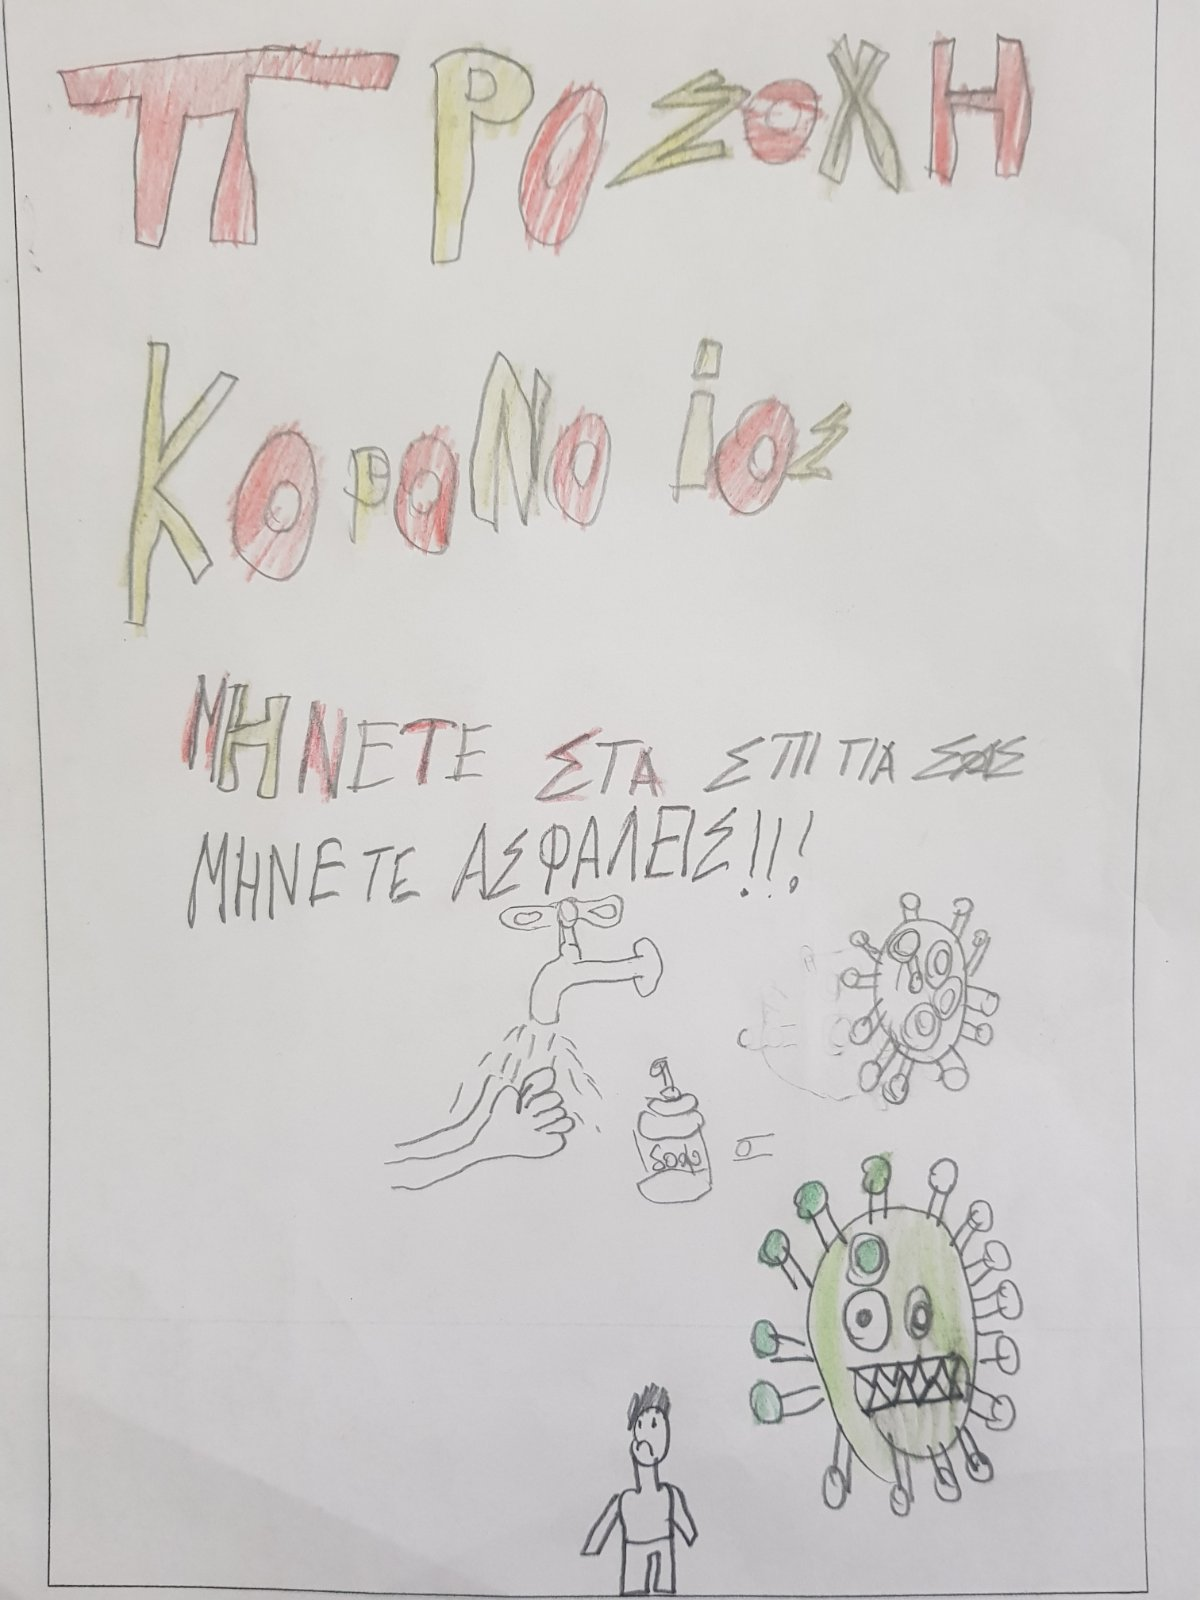 ΠΡΟΣΟΧΗ
ΚΟΡΟΝΟiΟΣ
ΜΗΝΕΤΕ ΣΤΑ ΣΠΙΤΙΑ ΣΑΣ
ΜΗΝΕΤΕ ΑΣΦΑΛΕΙΣ!!!
Soap